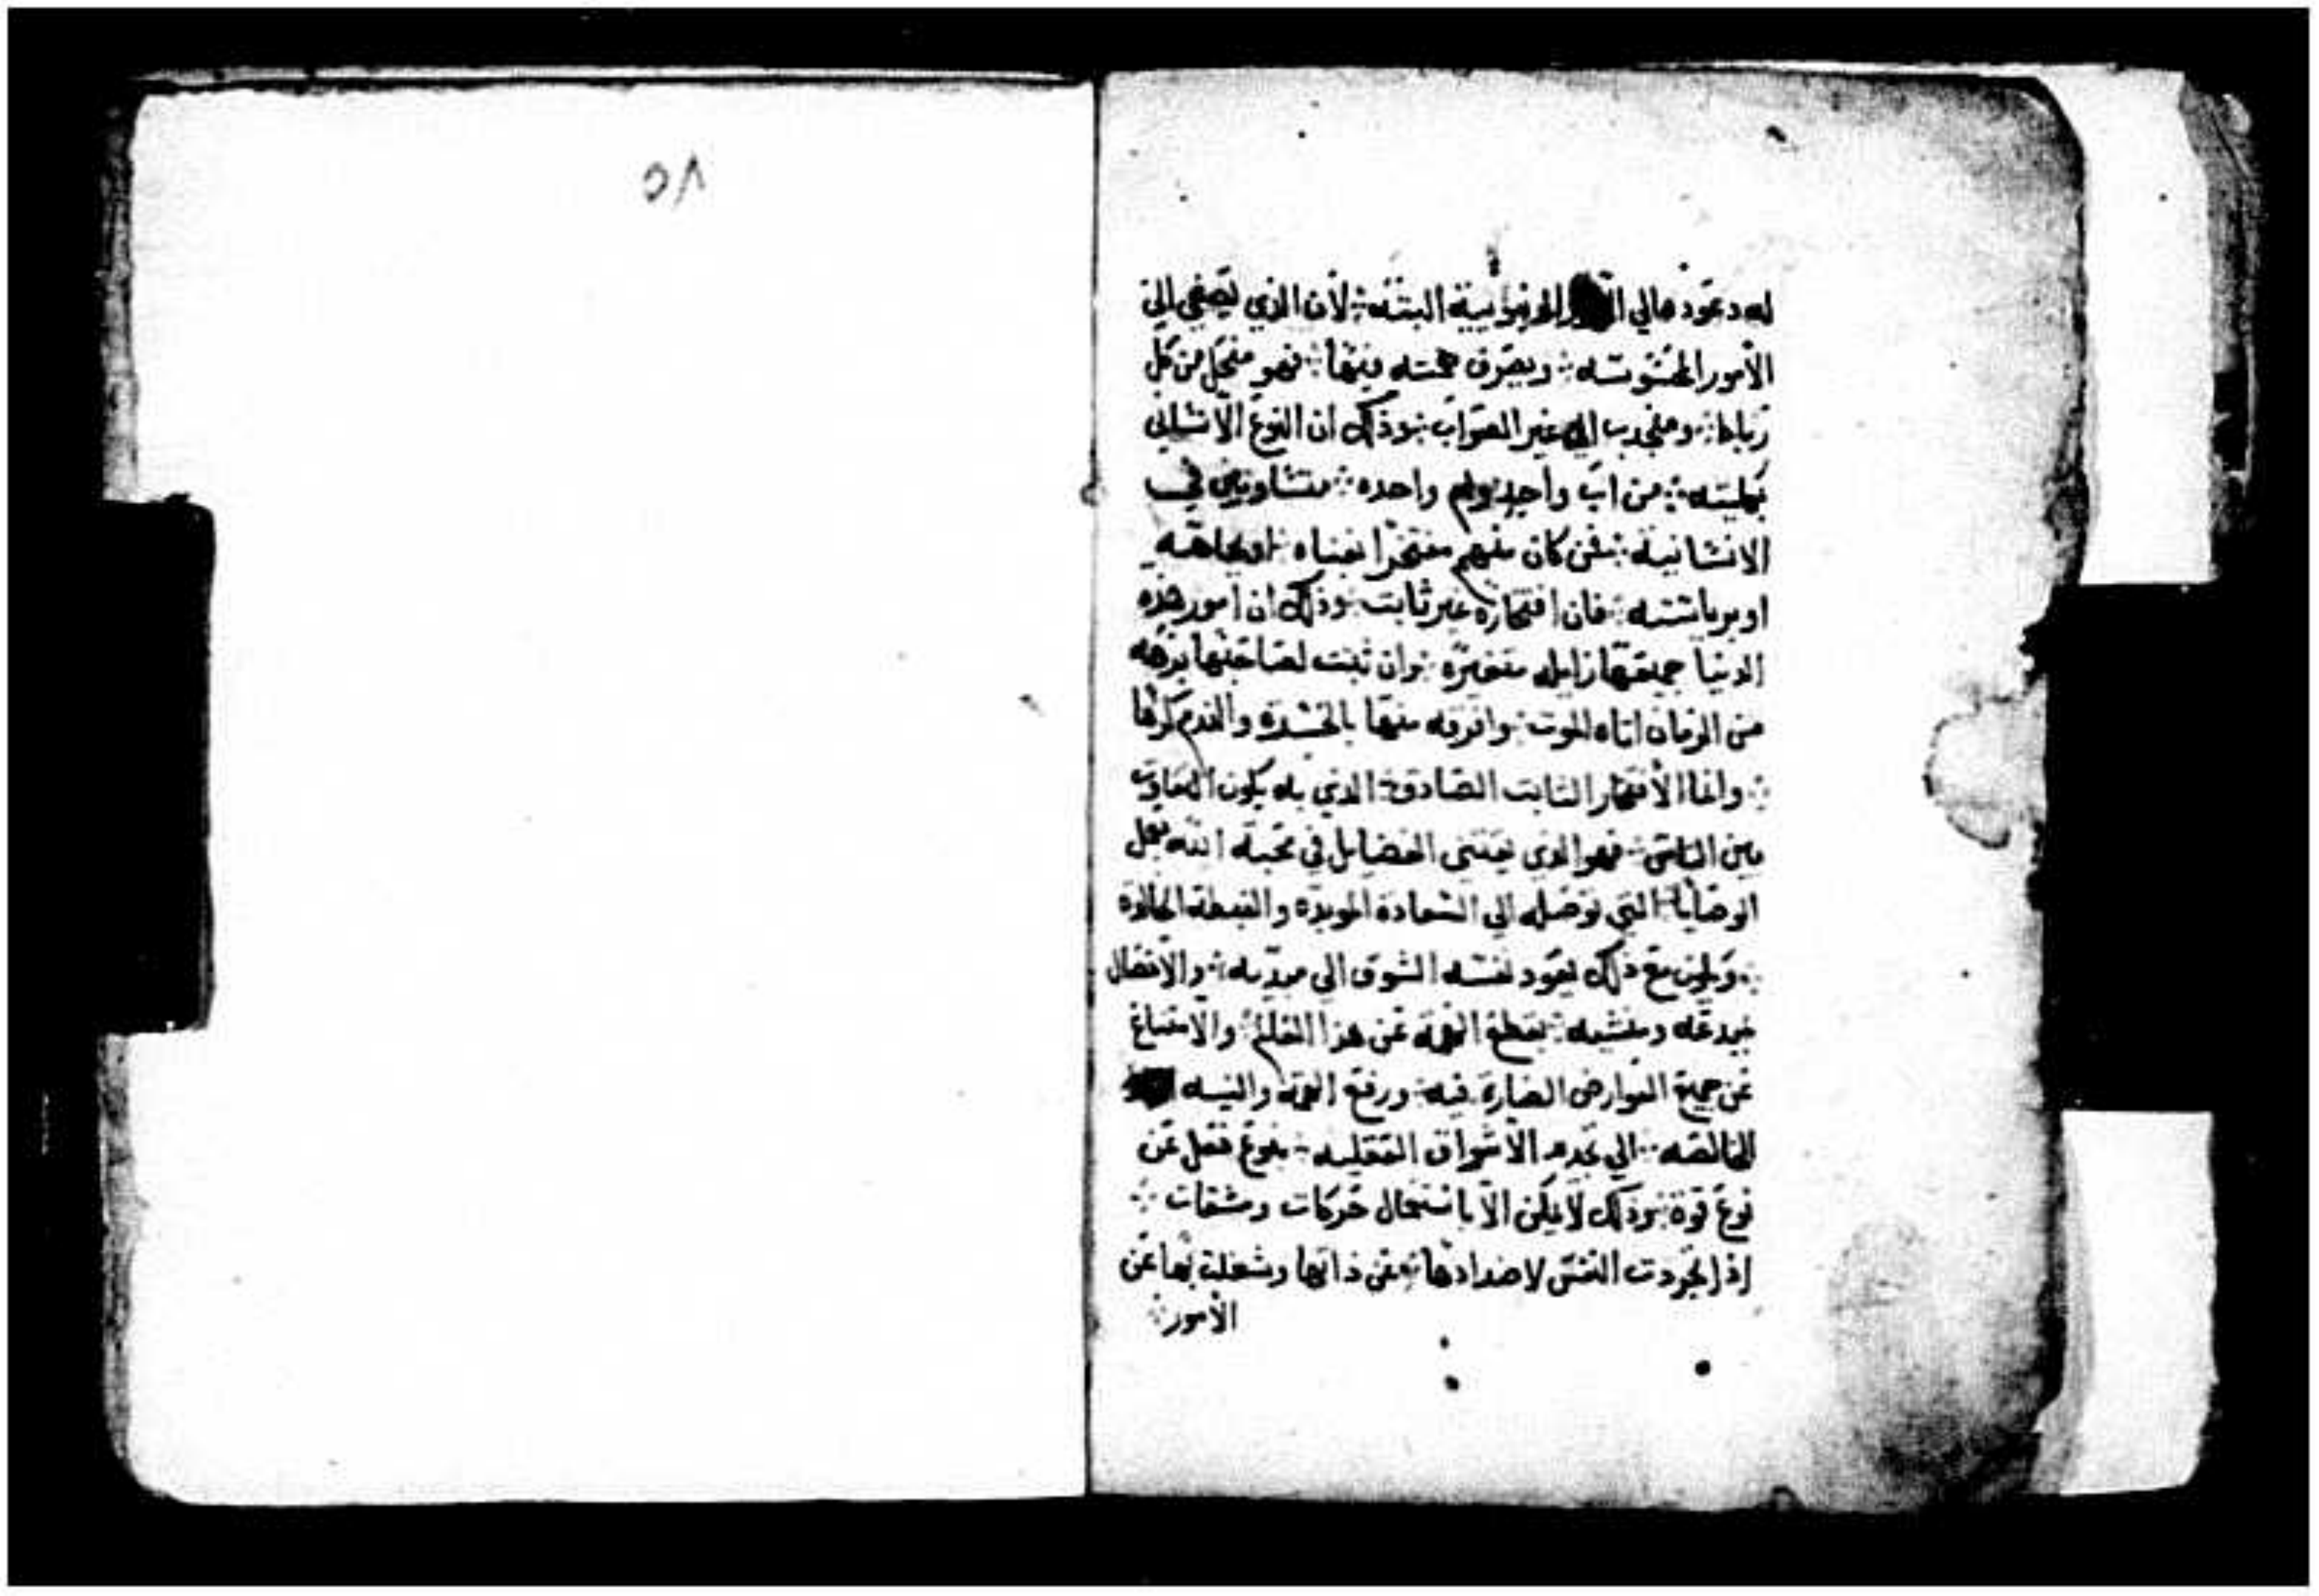 له دعود مالي الحيوانية البته ܀ لان الذي يصغي الى
الامور المحسوسه ܀ ويصرف همته فيها ܀ فهو منحل من كل
رباط ܀ ومنجذب الى غير الصواب ܀ وذلك ان النوع الانساني
بكليته ܀ من اب واحد وام واحده ܀ متساويين في
الانسانية ܀ فمن كان منهم مفتخرا بغناه ܀ او بجاهه
او برياسته ܀ فان افتخاره غير ثابت ܀ وذلك ان امور هذه
الدنيا جميعها زايله متغيره ܀ وان ثبتت لصاحبها برهه
من الزمان اتاه الموت ܀ وافرقه منها بالحسره والندم كرها
܀ وانما الافتخار الثابت الصادق ܀ الذي به يكون التفاوت
بين الناس ܀ فهو الذي يقتني الفضايل في محبة الله بعمل
الوصايا ܀ التي توصله الى السعادة الموبده والغبطه الخالده
܀ ويلزم مع ذلك يعود نفسه الشوق الى موديه ܀ والاتصال
بمبدعه ومنشيه ܀ بقطع الهمه عن هذا العالم ܀ والامتناع
عن جميع العوارض الضارة فيه ܀ ورفع الهمه والنيه
الخالصه ܀ الى الاشواق العقليه ܀ بنوع فعل عن
نوع قوة ܀ وذلك لا يمكن الا باستعمال حركات ومشقات ܀
اذا تجردت النفس لاضدادها ܀ عن ذاتها وشغلت بها عن
الامور ܀
٥٨